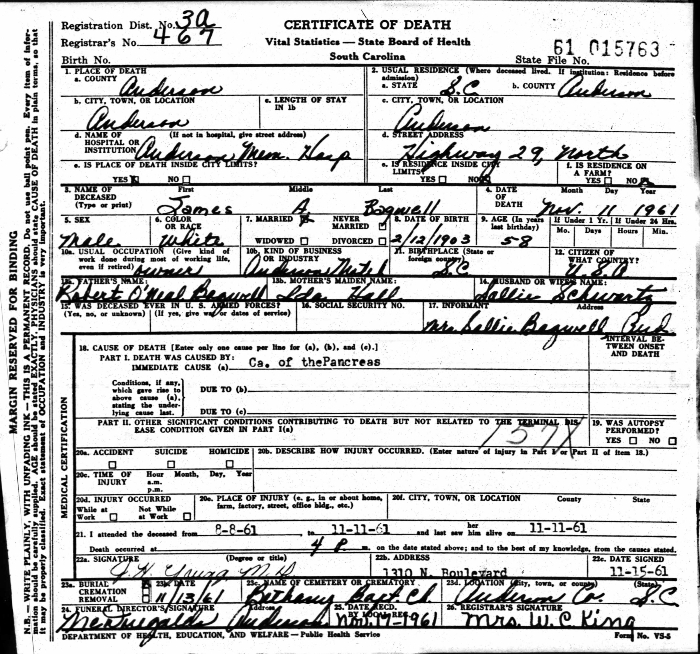 Registration Dist. No. 3a
Registrar's No. 467
CERTIFICATE OF DEATH
Vital Statistics — State Board of Health
South Carolina
61 015763
Birth No.
State File No.
1. PLACE OF DEATH
a. COUNTY
Anderson
2. USUAL RESIDENCE (Where deceased lived. If institution: Residence before admission)
a. STATE S.C b. COUNTY Anderson
b. CITY, TOWN, OR LOCATION
Anderson
c. LENGTH OF STAY IN 1b
c. CITY, TOWN, OR LOCATION
Anderson
d. NAME OF (If not in hospital, give street address)
HOSPITAL OR
INSTITUTION Anderson Mem. Hosp
d. STREET ADDRESS
Highway 29, North
e. IS PLACE OF DEATH INSIDE CITY LIMITS?
YES NO
e. IS RESIDENCE INSIDE CITY LIMITS?
YES NO
f. IS RESIDENCE ON A FARM?
YES NO
3. NAME OF DECEASED (Type or print)
First Middle Last
James A Bagwell
4. DATE OF DEATH
Month Day Year
Nov. 11 1961
5. SEX
Male
6. COLOR OR RACE
White
7. MARRIED NEVER MARRIED
WIDOWED DIVORCED
8. DATE OF BIRTH
2/12/1903
9. AGE (In years last birthday)
58
If Under 1 Yr. If Under 24 Hrs.
Mo. Days Hours Min.
10a. USUAL OCCUPATION (Give kind of work done during most of working life, even if retired)
owner
10b. KIND OF BUSINESS OR INDUSTRY
Anderson Motel
11. BIRTHPLACE (State or foreign country)
S.C
12. CITIZEN OF WHAT COUNTRY?
U.S.A
13a. FATHER'S NAME
Robert O'Neal Bagwell
13b. MOTHER'S MAIDEN NAME
Ida Hall
14. HUSBAND OR WIFE'S NAME
Sallie Schwartz
15. WAS DECEASED EVER IN U. S. ARMED FORCES?
(Yes, no, or unknown) (If yes, give war or dates of service)
16. SOCIAL SECURITY NO.
17. INFORMANT Address
Mrs. Sallie Bagwell
18. CAUSE OF DEATH [Enter only one cause per line for (a), (b), and (c).]
INTERVAL BETWEEN ONSET AND DEATH
PART I. DEATH WAS CAUSED BY:
IMMEDIATE CAUSE (a) Ca. of thePancreas
Conditions, if any, which gave rise to above cause (a), stating the underlying cause last.
DUE TO (b)
DUE TO (c)
PART II. OTHER SIGNIFICANT CONDITIONS CONTRIBUTING TO DEATH BUT NOT RELATED TO THE TERMINAL DISEASE CONDITION GIVEN IN PART I(a)
157X
19. WAS AUTOPSY PERFORMED?
YES NO
20a. ACCIDENT SUICIDE HOMICIDE
20b. DESCRIBE HOW INJURY OCCURRED. (Enter nature of injury in Part I or Part II of item 18.)
20c. TIME OF INJURY Hour Month, Day, Year
a.m.
p.m.
20d. INJURY OCCURRED
While at Work Not While at Work
20e. PLACE OF INJURY (e. g., in or about home, farm, factory, street, office bldg., etc.)
20f. CITY, TOWN, OR LOCATION County State
21. I attended the deceased from 8-8-61 to 11-11-61 and last saw her him alive on 11-11-61
Death occurred at 4 P. m. on the date stated above; and to the best of my knowledge, from the causes stated.
22a. SIGNATURE (Degree or title)
Young M.D.
22b. ADDRESS
1310 N. Boulevard
22c. DATE SIGNED
11-15-61
23a. BURIAL
CREMATION
REMOVAL
23b. DATE
11/13/61
23c. NAME OF CEMETERY OR CREMATORY
Bethany Bapt. Ch
23d. LOCATION (City, town, or county) (State)
Anderson Co. S.C
24. FUNERAL DIRECTOR'S SIGNATURE Address
McDougalds Anderson
25. DATE RECD. BY LOCAL REG.
Nov. 17-1961
26. REGISTRAR'S SIGNATURE
Mrs. W. C. King
DEPARTMENT OF HEALTH, EDUCATION, AND WELFARE — Public Health Service
Form No. VS-5
MARGIN RESERVED FOR BINDING
N.B. — WRITE PLAINLY, WITH UNFADING INK — THIS IS A PERMANENT RECORD. Do not use ball point pen. Every item of information should be carefully supplied. AGE should be stated EXACTLY. PHYSICIANS should state CAUSE OF DEATH in plain terms, so that it may be properly classified. Exact statement of OCCUPATION and INDUSTRY is very important.
MEDICAL CERTIFICATION